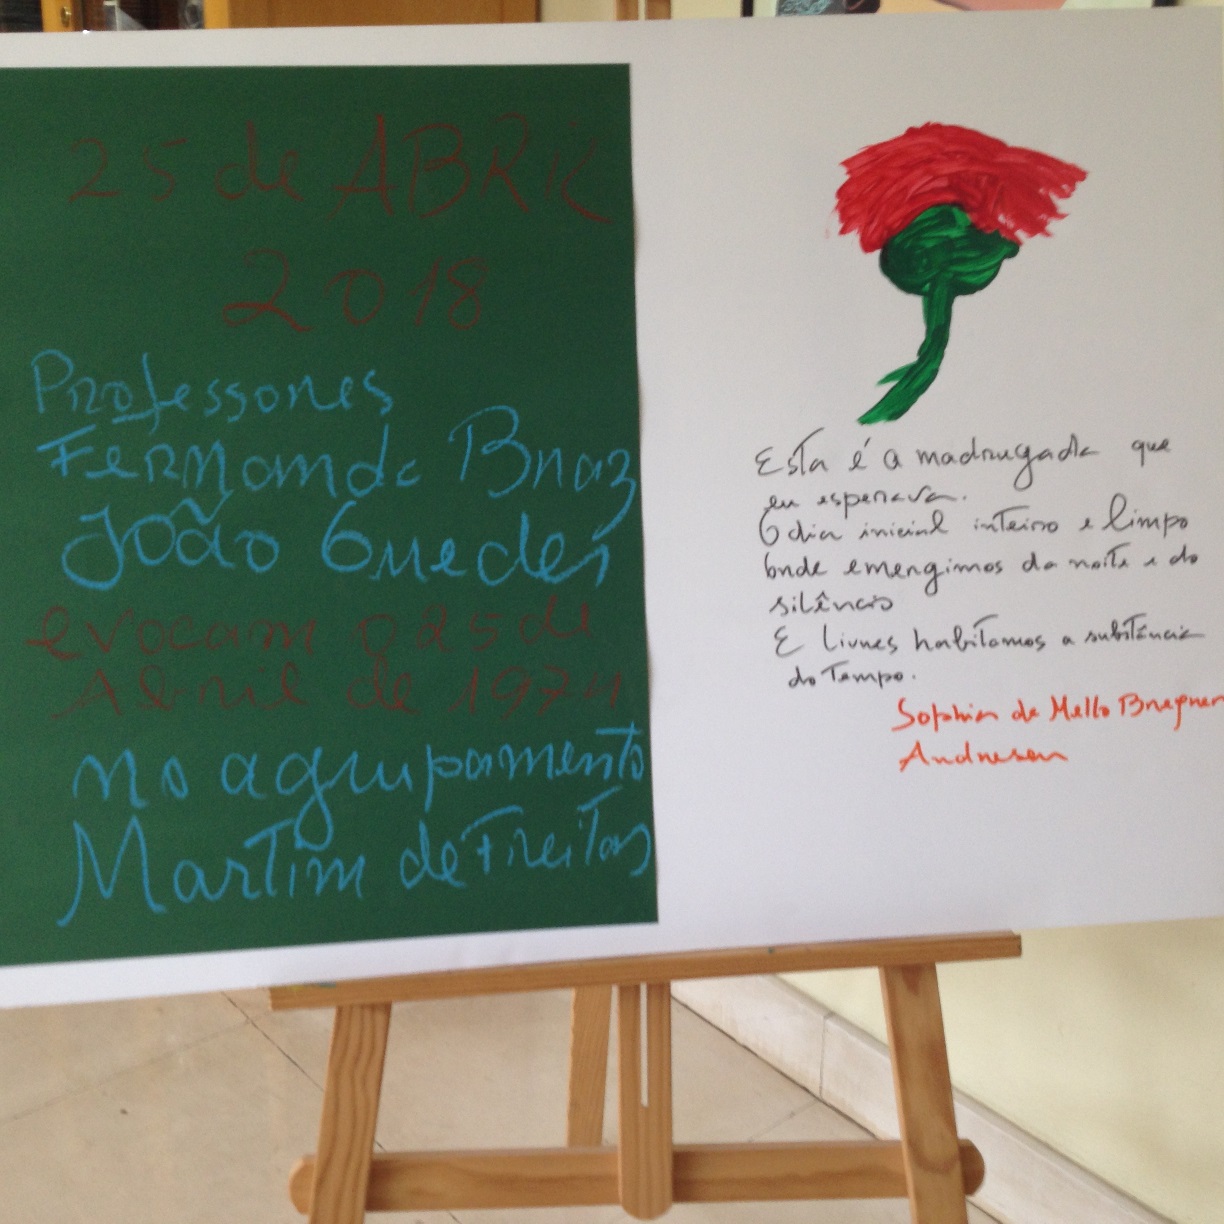 25 de ABRIL
2018
Professores
Fernanda Braz
João Guedes
evocam o 25 de
Abril de 1974
no agrupamento
Martim de Freitas
Esta é a madrugada que
eu esperava.
O dia inicial inteiro e limpo
Onde emergimos da noite e do
silêncio
E livres habitamos a substância
do Tempo.
Sophia de Mello Breyner
Andresen